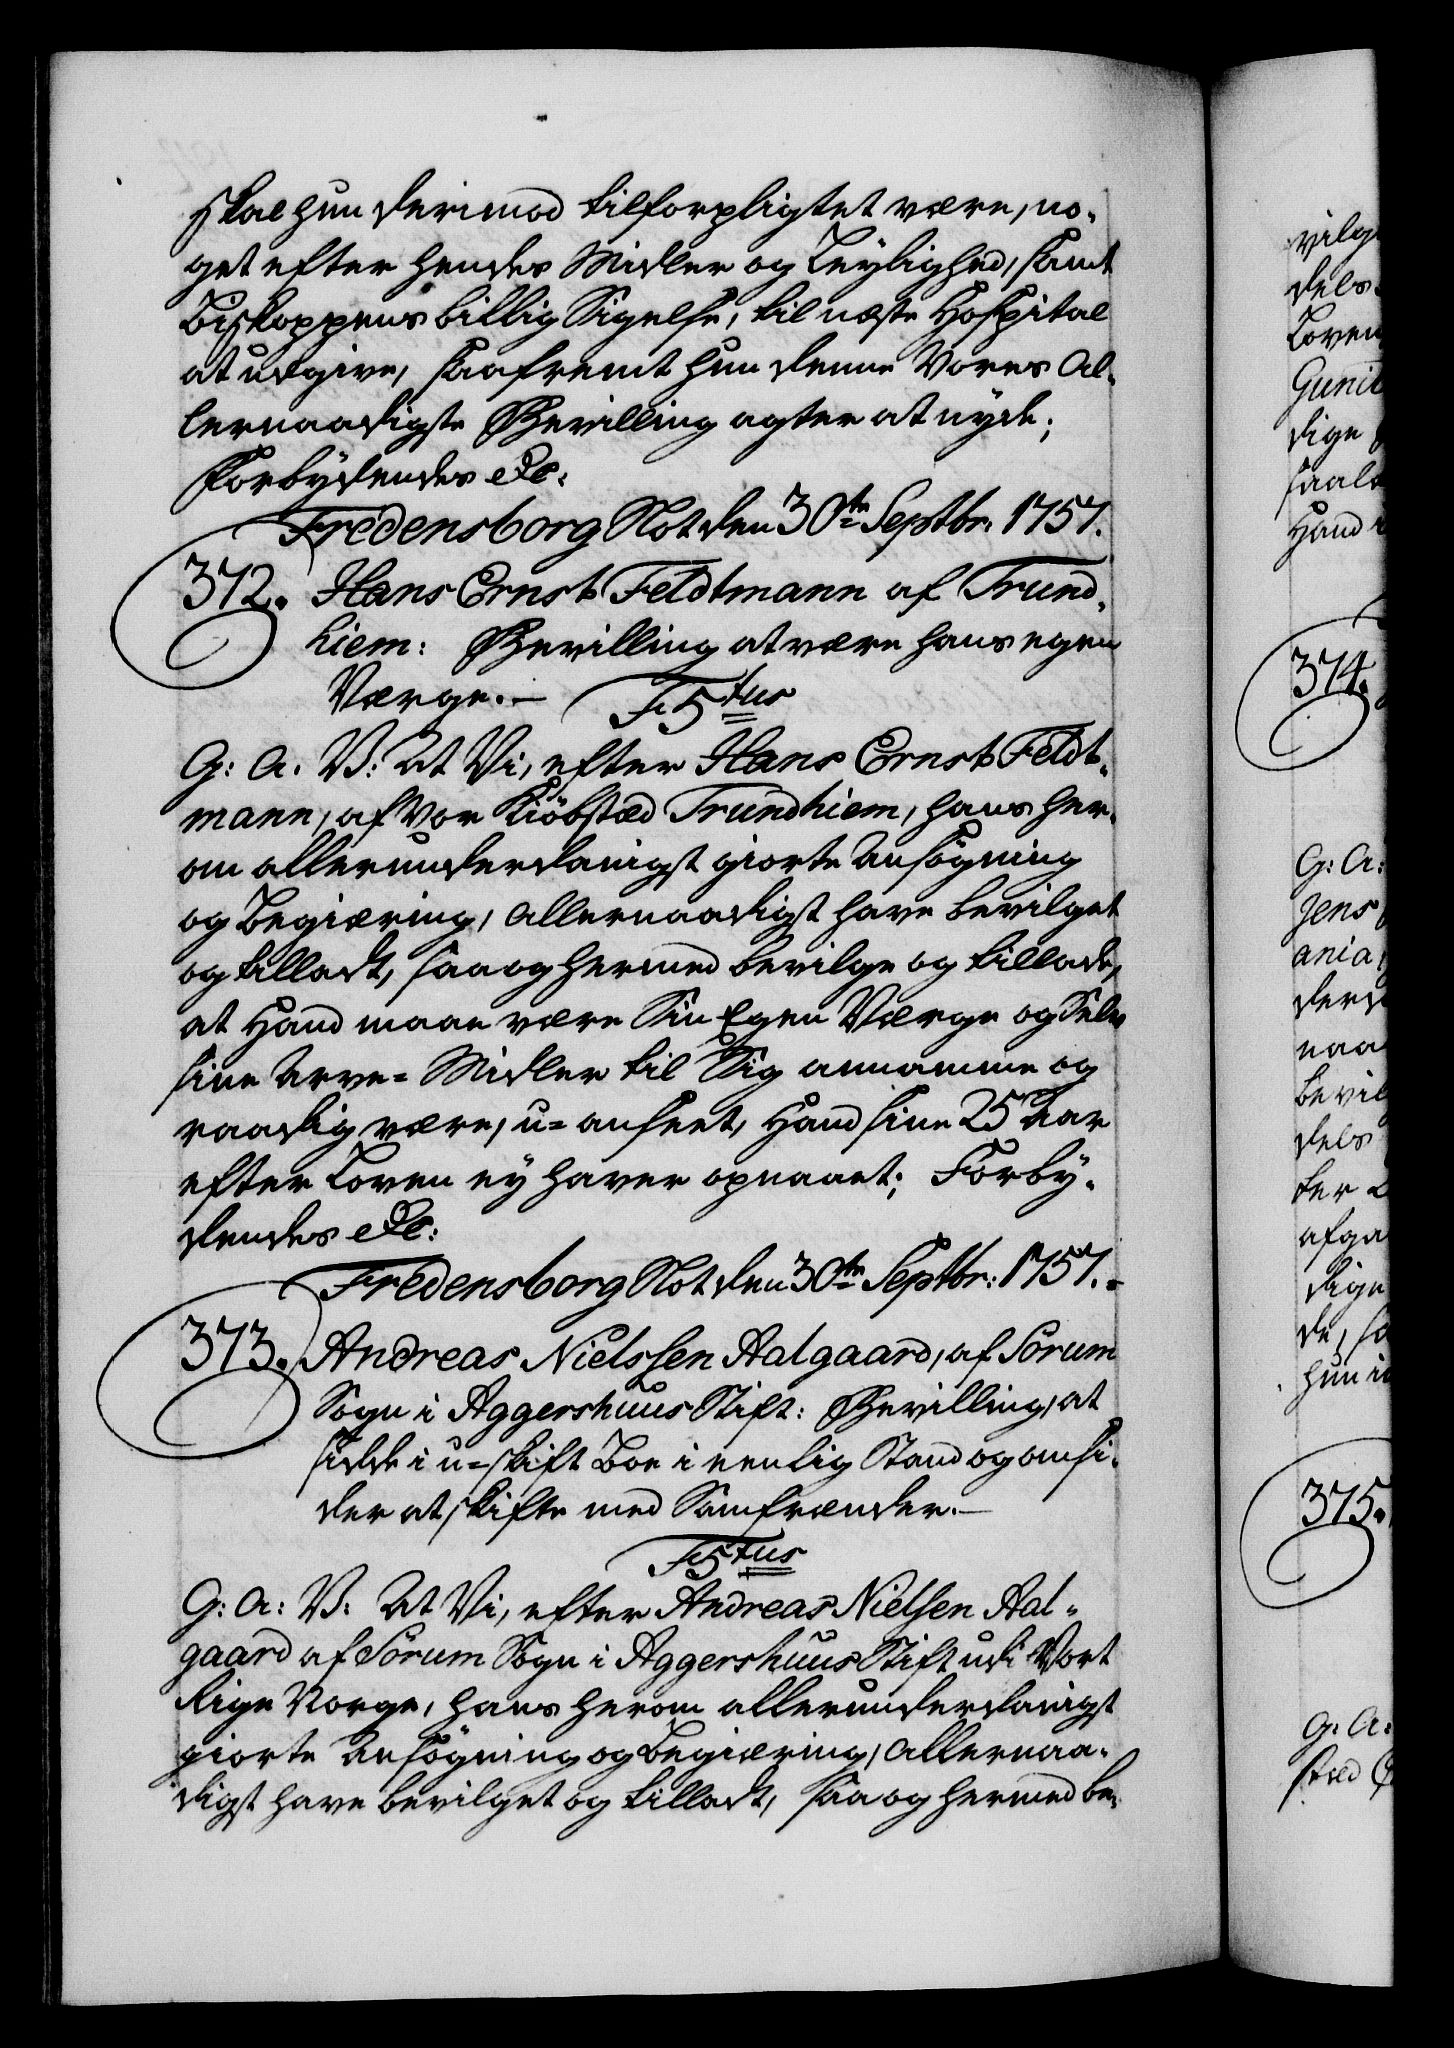 skal hun derimod tilforpligtet være, no-
get efter hendes Midler og Leylighed, samt
Biskoppens billig Sigelse, til næste Hospital
at udgive, saafremt hun denne Vores Al-
lernaadigste Bevilling agter at nyde;
Forbydendes etc:
Fredensborg Slot den 30te Septbr: 1757.
372. Hans Ernst Feldtmann af Trund-
hiem: Bevilling at være hans egen
Værge.—
F5tus
G: A: V: At Vi, efter Hans Ernst Feldt-
mann, af Vor Kiöbstæd Trundhiem, hans her-
om allerunderdanigst giorte Ansögning
og Begiæring, Allernaadigst have bevilget
og tilladt, saa og hermed bevilge og tillade,
at Hand maae være Sin Egen Værge og Selv
sine Arve= Midler til Sig annamme og
raadig være, u=anseet, Hand sine 25 Aar
efter Loven ey haver opnaaet; Forby-
dendes etc:
Fredensborg Slot den 30te Septbr: 1757.=
373. Andreas Nielssen Aalgaard, af Sörum
Sogn i Aggershuus Stift: Bevilling, at
sidde i u=skift Boe i eenlig Stand og omsi-
der at skifte med Samfrænder.—
F5tus
G: A: V: At Vi, efter Andreas Nielsen Aal-
gaard af Sörum Sogn i Aggershuus Stift udi Vort
Rige Norge, hans herom allerunderdanigst
giorte Ansögning og Begiæring, Allernaa-
digst have bevilget og tilladt, saa og hermed be-
vilge
dels
Loven
Gunil
dige
saale
Hand
374.
G: A:
Jens
ania,
derd
naa
bevil
dels
ter L
afga
dige
de, sa
hun i
375.
G: A:
stæd